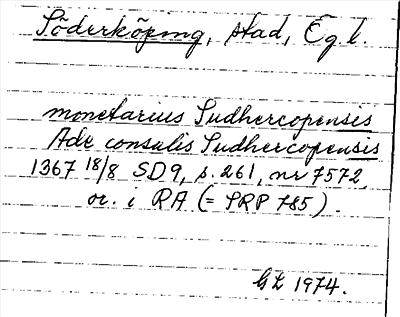 Söderköping, stad, Ög l.
monetarius Sudhercopensis
Ade consulis Sudhercopensis
1367 18/8 SD 9, s. 261, nr 7572,
or. i RA (= PRP 785).
GL 1974.